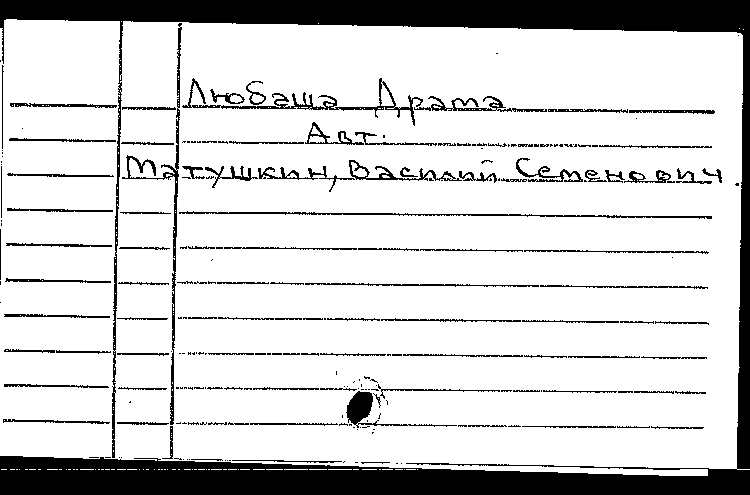 Любаша Драма
Авт.
Матушкин, Василий Семенович.